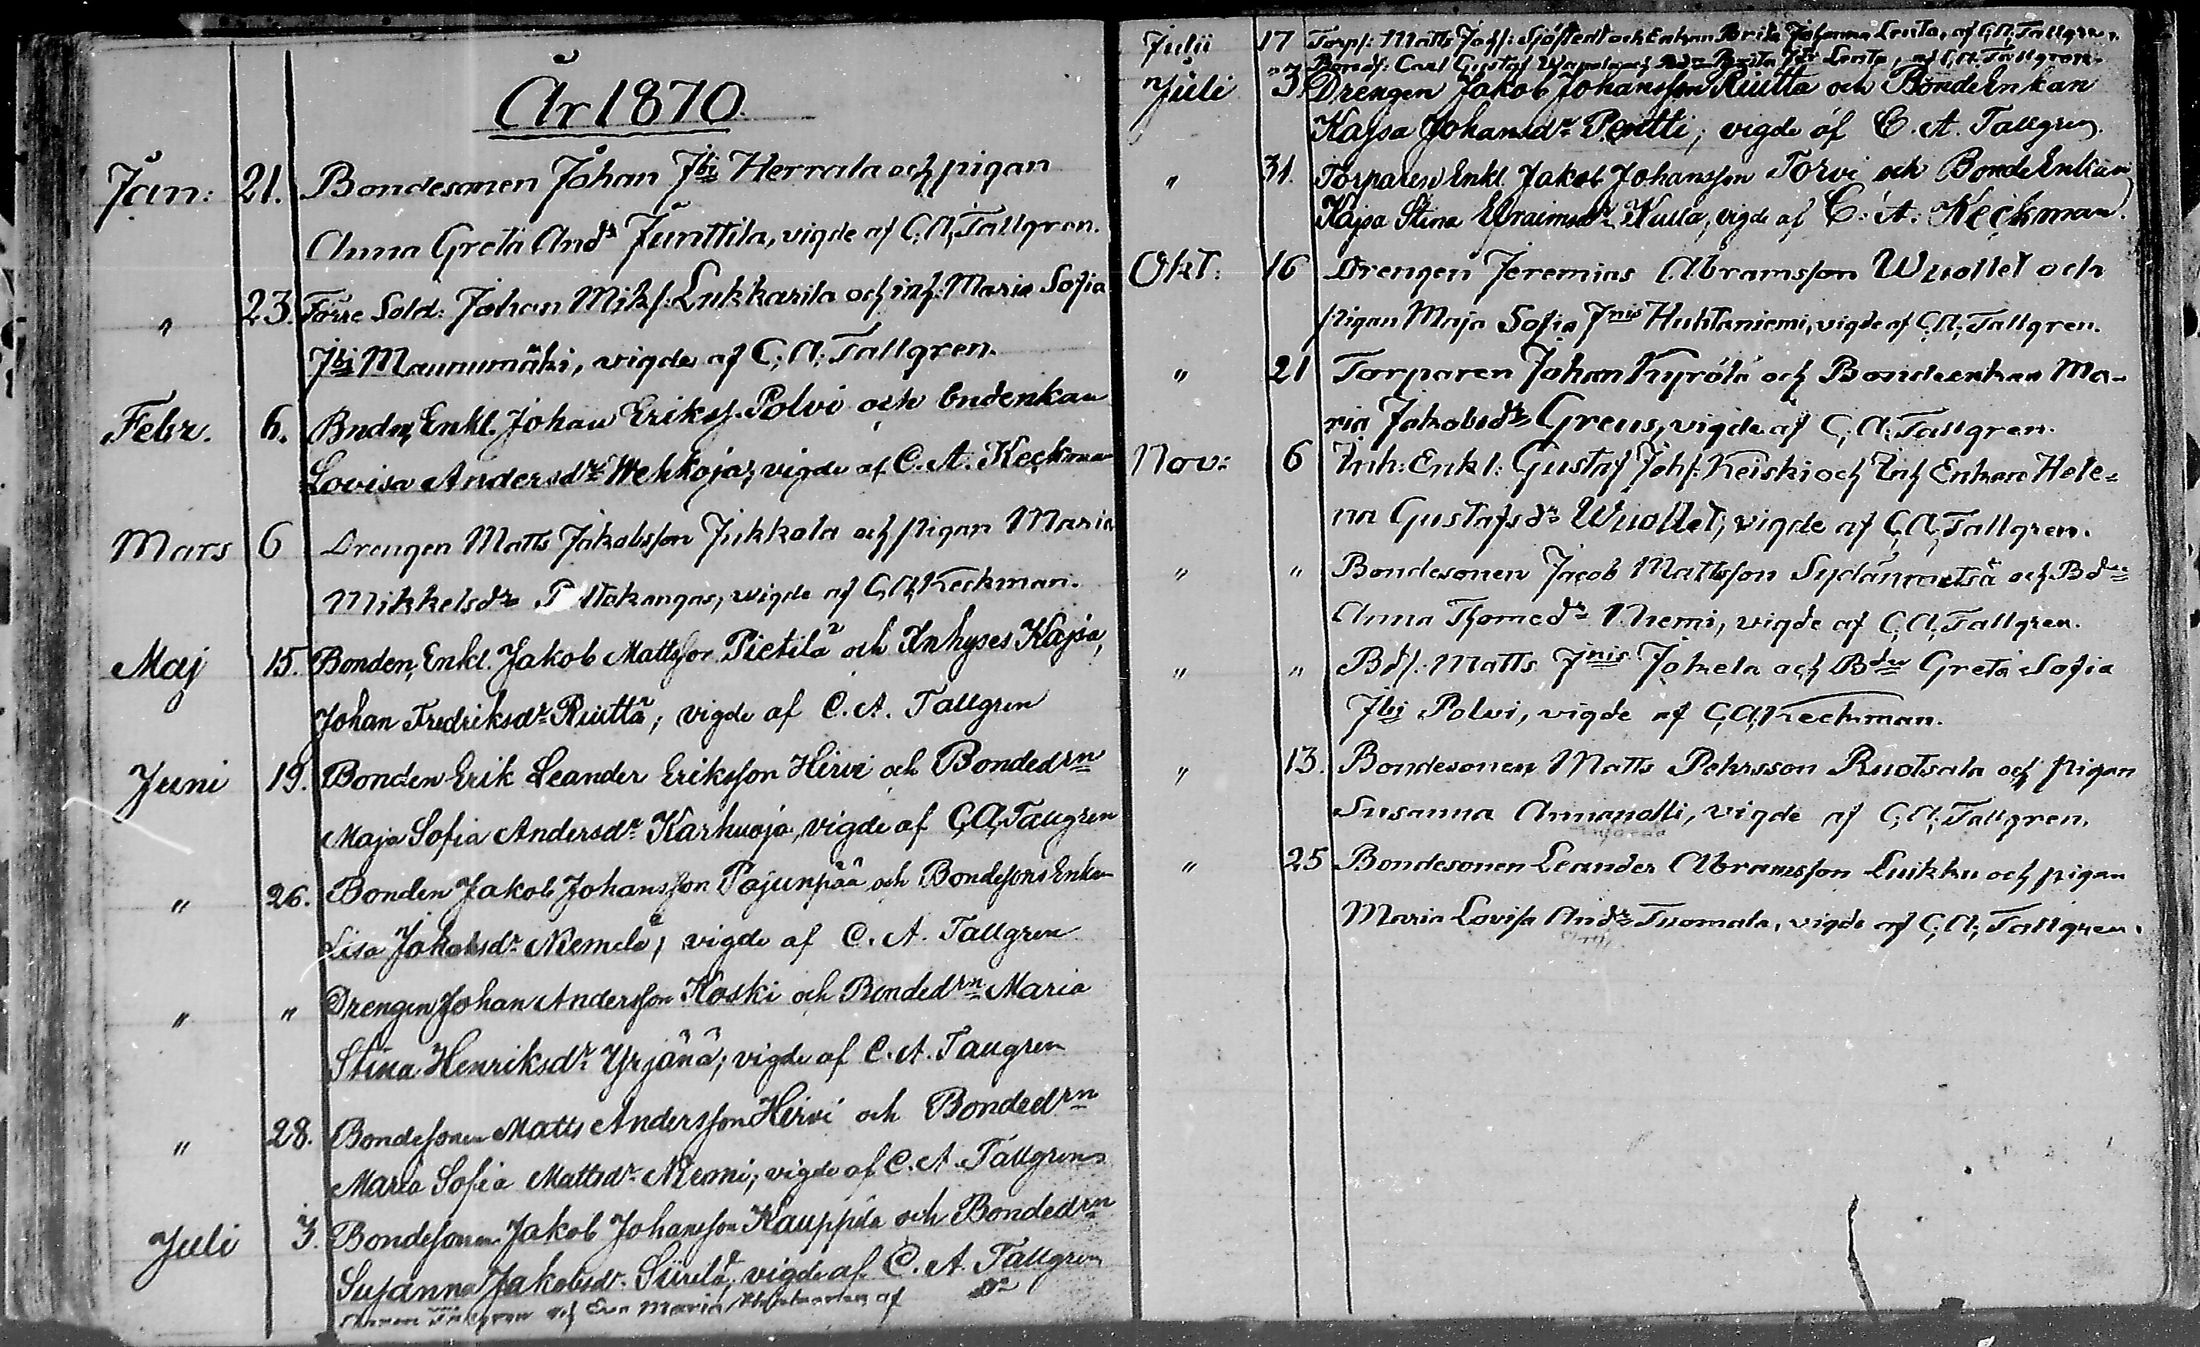 År 1870.
Jan: 21. Bondesonen Johan Jbj Herrala och pigan
Anna Greta Andr Junttila, vigde af C. A. Tallgren.
" 23. Förre Sold: Johan Mikf: Lukkarila och inh: Maria Sofia
Jbj Maunumäki, vigde af C. A. Tallgren.
Febr. 6. Bnden, Enkl. Johan Eriksf. Polvi och bndenkan
Lovisa Andersdr Wehkoja; vigde af C. A. Keckman
Mars 6 Drengen Matts Jakobsson Jukkola och pigan Maria
Mikkelsdr vigde af C. A. Keckman.
Maj 15. Bonden, Enkl. Jakob Mattsson Pietilä och Inhyses Kajsa,
Johan Fredriksdr Riutta; vigde af C. A. Tallgren
Juni 19. Bonden Erik Leander Eriksson Hirvi och Bondedrn
Maja Sofia Andersdr Karhuoja, vigde af C. A. Tallgren
" 26. Bonden Jakob Johansson Pajunpää och Bondesons Enkan
Lisa Jakobsdr Niemelä; vigde af C. A. Tallgren
" " Drengen Johan Andersson Koski och Bondedrn Maria
Stina Henriksdr Yrjänä; vigde af C. A. Tallgren
" 28. Bondesonen Matts Andersson Hirvi och Bondedrn
Maria Sofia Mattsdr Niemi; vigde af C. A. Tallgren
Juli 3. Bondesonen Jakob Johansson Kauppila och Bondedrn
Susanna Jakobsdr Siirilä, vigde af C. A. Tallgren
och Eva Maria af Do
Julii 17 Torpf: Matts Johf: Sjöstedt och Enkan Brita Johanna Lenta, af C. A. Tallgren.
" Bondf: Carl Gustaf och Brita Lenta, af C. A. Tallgren.
Juli 3 Drengen Jakob Johansson Riutta och BondeEnkan
Kajsa Johansdr Pentti; vigde af C. A. Tallgren.
" 31. Torparen Enkl. Jakob Johansson Torvi och BondeEnkan
Kajsa Stina Efraimsdr Kulla, vigde af C. A. Keckman.
Okt: 16 Drengen Jeremias Abramsson Wuollet och
pigan Maja Sofia Jnis Huhtaniemi, vigde af C. A. Tallgren.
" 21 Torparen Johan Kyrölä och Bondeenkan Ma-
ria Jakobsdr Greus, vigde af C. A. Tallgren.
Nov: 6 Inh: Enkl: Gustaf Johf: Keiski och Inh Enkan Hele-
na Gustafsdr Wuollet; vigde af C. A. Tallgren.
" " Bondesonen Jacob Mattsson Sydänmetsä och Bdn
Anna Thomedr Niemi, vigde af C. A. Tallgren.
" " Bdf: Matts Jnis Jokela och Bdn Greta Sofia
Jbj Polvi, vigde af C. A. Keckman.
" 13. Bondesonen Matts Pehrsson Ruotsala och pigan
Susanna Annanolli, vigde af C. A. Tallgren.
" 25 Bondesonen Leander Abramsson Luikku och pigan
Maria Lovisa Andr Tuomala, vigde af C. A. Tallgren.